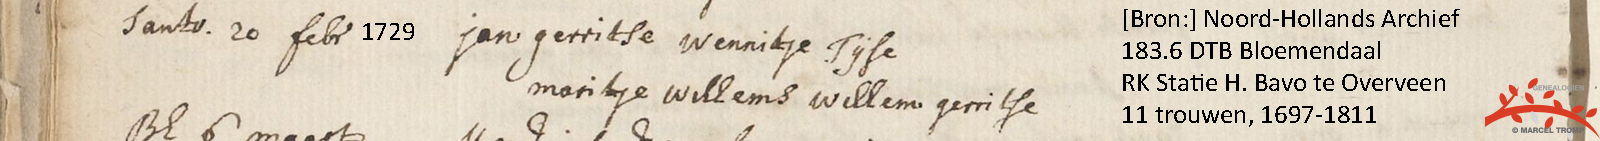 Santv. 20 febr 1729 jan gerritse wennitje Tijse
maritje willems willem gerritse
6 maert
[Bron:] Noord-Hollands Archief
183.6 DTB Bloemendaal
RK Statie H. Bavo te Overveen
11 trouwen, 1697-1811
GENEALOGIE
© MARCEL TROMP